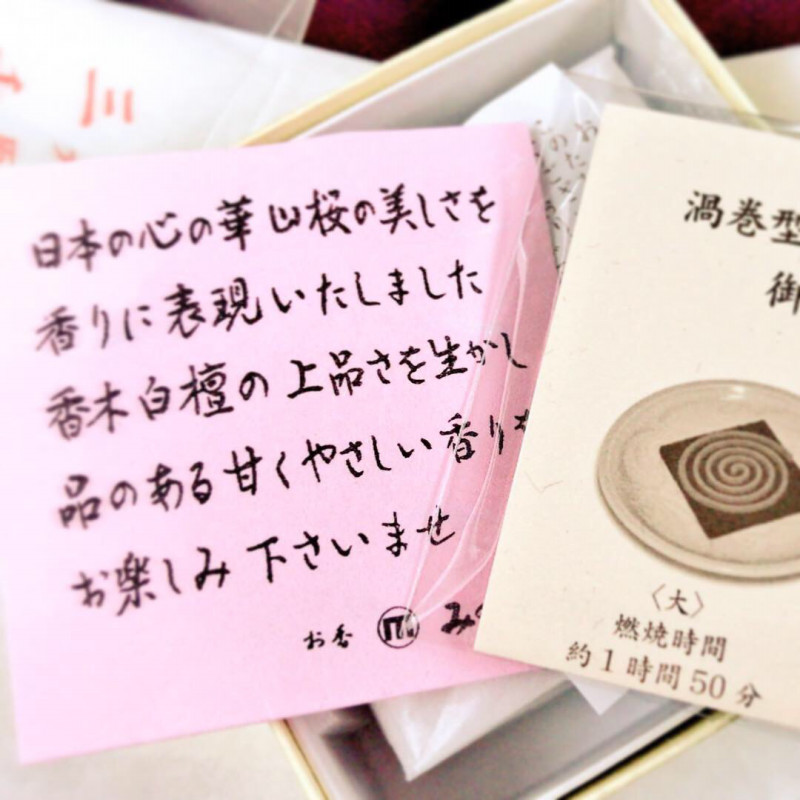 三
日本の心の華山桜の美しさを
香りに表現いたしました
香木白檀の上品さを生かし
品のある甘くやさしい香りを
お楽しみ下さいませ
お香
み
渦巻型
御
〈大〉
燃焼時間
約1時間50分